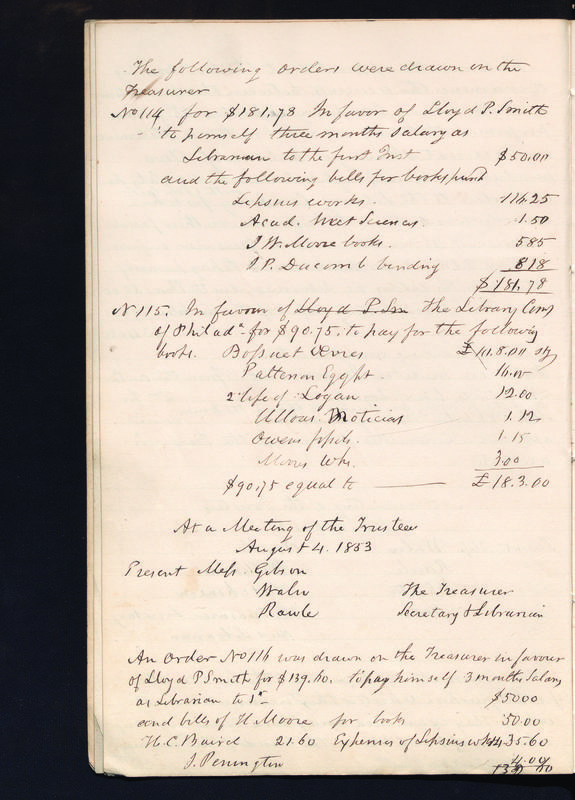 The following orders were drawn on the
Treasurer
No 114 for $181,78 In favor of Lloyd P. Smith
to himself three months Salary as
Librarian to the first Inst $50.00
and the following bills for books
Lepsius works. 116 25
Acad. Nat Sciences. 1.50
J. W. Moore books. 5 85
J. P. Ducomb binding 8 18
$181.78
No 115. In favour of Lloyd P. Sm the Library Comy
of Philada for $90.75, to pay for the following
books. Bossuet £
Patterson Egypt.
2d life of Logan 12.00
Ulloas Noticias 1.12
Owens 1.15
Moores Wks. 3.00
$90,75 equal to £18.3.00
At a Meeting of the Trustees
August 4. 1853
Present Mess Gibson
Waln The Treasurer
Rawle Secretary & Librarian
An order No 116 was drawn on the Treasurer in favour
of Lloyd P Smith for $139.60. To pay himself 3 months Salary
as Librarian to 1st $50 00
and bills of W. Moore for books 50.00
H. C. Baird 21.60 Expenses of Lepsius wks 14. 35.60
J. Penington 4.00
139 60